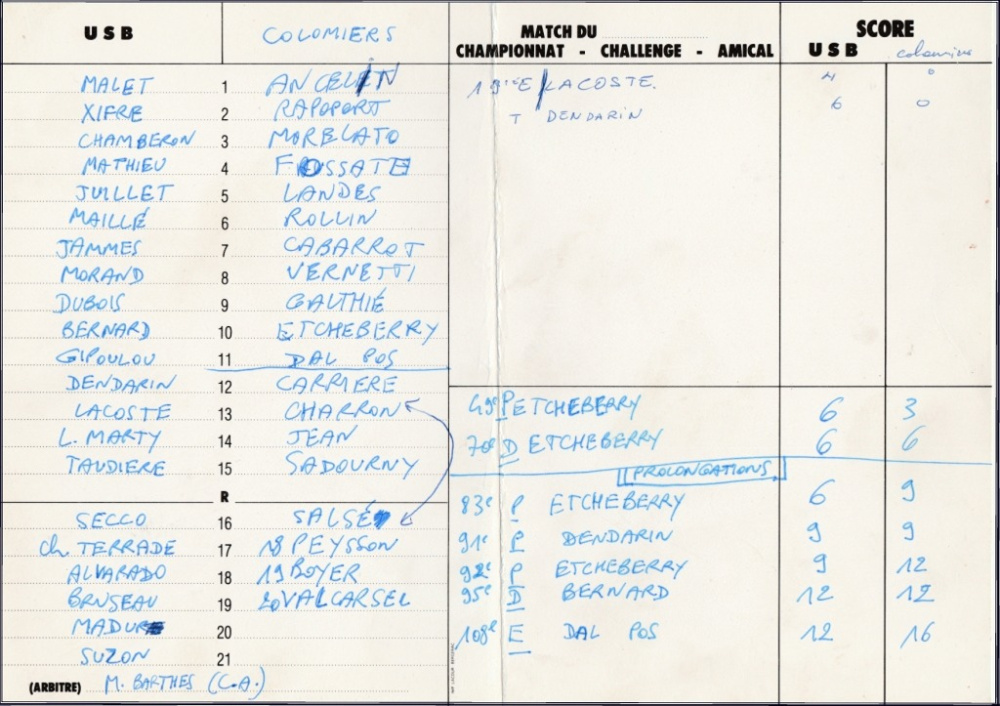 USB COLOMIERS MATCH DU SCORE
CHAMPIONNAT - CHALLENGE - AMICAL USB colomiers
MALET 1 ANCELIN 19e E LACOSTE. 4 0
XIFRE 2 RAPOPORT T DENDARIN 6 0
CHAMBERON 3 MORELATO
MATHIEU 4 FOSSATE
JUILLET 5 LANDES
MAILLÉ 6 ROLLIN
JAMMES 7 CABARROT
MORAND 8 VERNETTI
DUBOIS 9 GALTHIÉ
BERNARD 10 ETCHEBERRY
GIPOULOU 11 DAL POS
DENDARIN 12 CARRIERE
LACOSTE 13 CHARRON 49e P ETCHEBERRY 6 3
L. MARTY 14 JEAN 70e D ETCHEBERRY 6 6
TAUDIERE 15 SADOURNY PROLONGATIONS
R
SECCO 16 SALSÉ 83e P ETCHEBERRY 6 9
Ch. TERRADE 17 18 PEYSSON 91e P DENDARIN 9 9
ALVARADO 18 19 BOYER 92e P ETCHEBERRY 9 12
BRUSEAU 19 20 VALCARSEL 95e D BERNARD 12 12
20 108e E DAL POS 12 16
SUZON 21
(ARBITRE) M. BARTHES (C.A.)